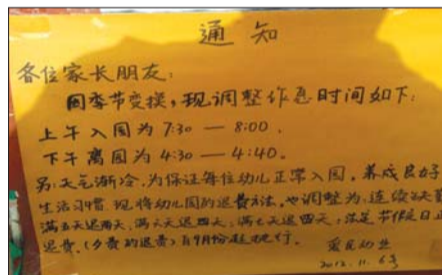 通知
各位家长朋友：
因季节变换，现调整作息时间如下：
上午入园为 7:30 — 8:00．
下午离园为 4:30 — 4:40．
另：天气渐冷，为保证每位幼儿正常入园。养成良好
生活习惯．现将幼儿园的退费方法，也调整为：连续
满五天退两天，满六天退四天，满七天退四天，法定节假日
退费。(夕费的退费)自9月份起执行。
爱民幼
2012.11.6号